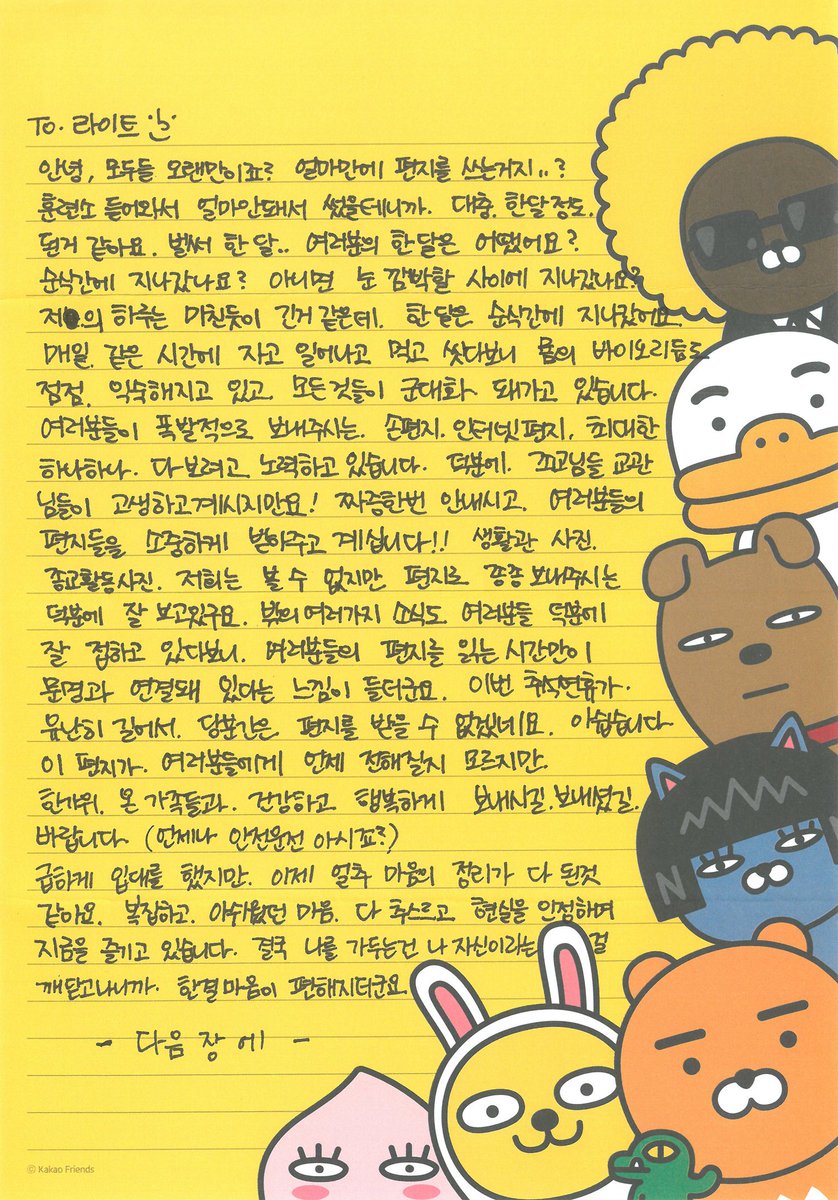 To. 라이트
안녕, 모두들 오랜만이죠? 얼마만에 편지를 쓰는거지..?
훈련소 들어와서 얼마안돼서 썼을테니까. 대충. 한달정도.
된거 같아요. 벌써 한 달.. 여러분의 한달은 어땠어요?
순식간에 지나갔나요? 아니면 눈 깜빡할 사이에 지나갔나요?
저의 하루는 미친듯이 긴거 같은데. 한달은 순식간에 지나갔어요.
매일. 같은 시간에 자고 일어나고 먹고 씻다보니 몸의 바이오리듬도
점점. 익숙해지고 있고. 모든것들이 군대화 돼가고 있습니다.
여러분들이 폭발적으로 보내주시는. 손편지. 인터넷편지, 최대한
하나하나. 다보려고 노력하고 있습니다. 덕분에. 조교님들 교관
님들이 고생하고계시지만요! 짜증한번 안내시고. 여러분들의
편지들을 소중하게 받아주고 계십니다!! 생활관 사진.
종교활동사진. 저희는 볼 수 없지만 편지로 종종 보내주시는
덕분에 잘 보고있구요. 밖의 여러가지 소식도. 여러분들 덕분에
잘 접하고 있다보니. 여러분들의 편지를 읽는 시간만이
문명과 연결돼 있다는 느낌이 들더군요. 이번 추석연휴가.
유난히 길어서. 당분간은 편지를 받을 수 없겠네요. 아쉽습니다
이 편지가. 여러분들에게 언제 전해질지 모르지만.
한가위. 온 가족들과. 건강하고 행복하게 보내시길.보내셨길.
바랍니다 (언제나 안전운전 아시죠?)
급하게 입대를 했지만. 이제 얼추 마음의 정리가 다 된것
같아요. 복잡하고. 아쉬웠던 마음. 다 추스르고 현실을 인정하며
지금을 즐기고 있습니다. 결국 나를 가두는건 나 자신이라는 걸
깨닫고나니까. 한결마음이 편해지더군요.
- 다음 장 에 -
© Kakao Friends